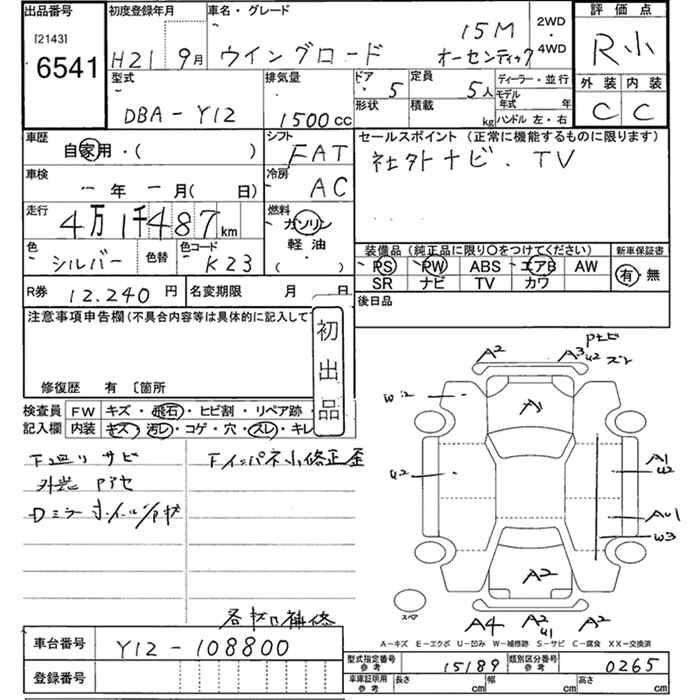 出品番号 初度登録年月 車名・グレード 15M 2WD・4WD 評価点
[2143]
6541 H21 9月 ウイングロード オーセンティック R小
型式 排気量 ドア 5 定員 5人 ディーラー・並行 外装 内装
DBA-Y12 1500cc 形状 積載 kg モデル年式 年 C C
ハンドル 左・右
車歴 自家用・( ) シフト FAT セールスポイント (正常に機能するものに限ります)
社外ナビ・TV
車検 一年 一月( 日) 冷房 AC
走行 4万1千487km 燃料 ガソリン
軽油
( )
色 シルバー 色替 色コード K23
装備品 (純正品に限り○をつけてください) 新車保証書
PS PW ABS エアB AW 有・無
SR ナビ TV カワ
R券 12.240円 名変期限 月 日 後日品
注意事項申告欄(不具合内容等は具体的に記入して
初出品
修復歴 有 〔箇所
検査員 FW キズ・飛石・ヒビ割・リペア跡・
記入欄 内装 キズ・汚レ・コゲ・穴・スレ・キレ
下廻りサビ
外装 Pアセ
下インパネ小修正歪
各ヤロ補修
A2 A3 U2
W2 A1
U2 A1 U2
AU1
W3
A2
スペア
A4 A2 U1 A2
A-キズ E-エクボ U-凹み W-補修跡 S-サビ C-腐食 XX-交換済
車台番号 Y12-108800
型式指定番号 参考 15189 類別区分番号 参考 0265
登録番号
車庫証明用 参考 長さ cm 幅 cm 高さ cm